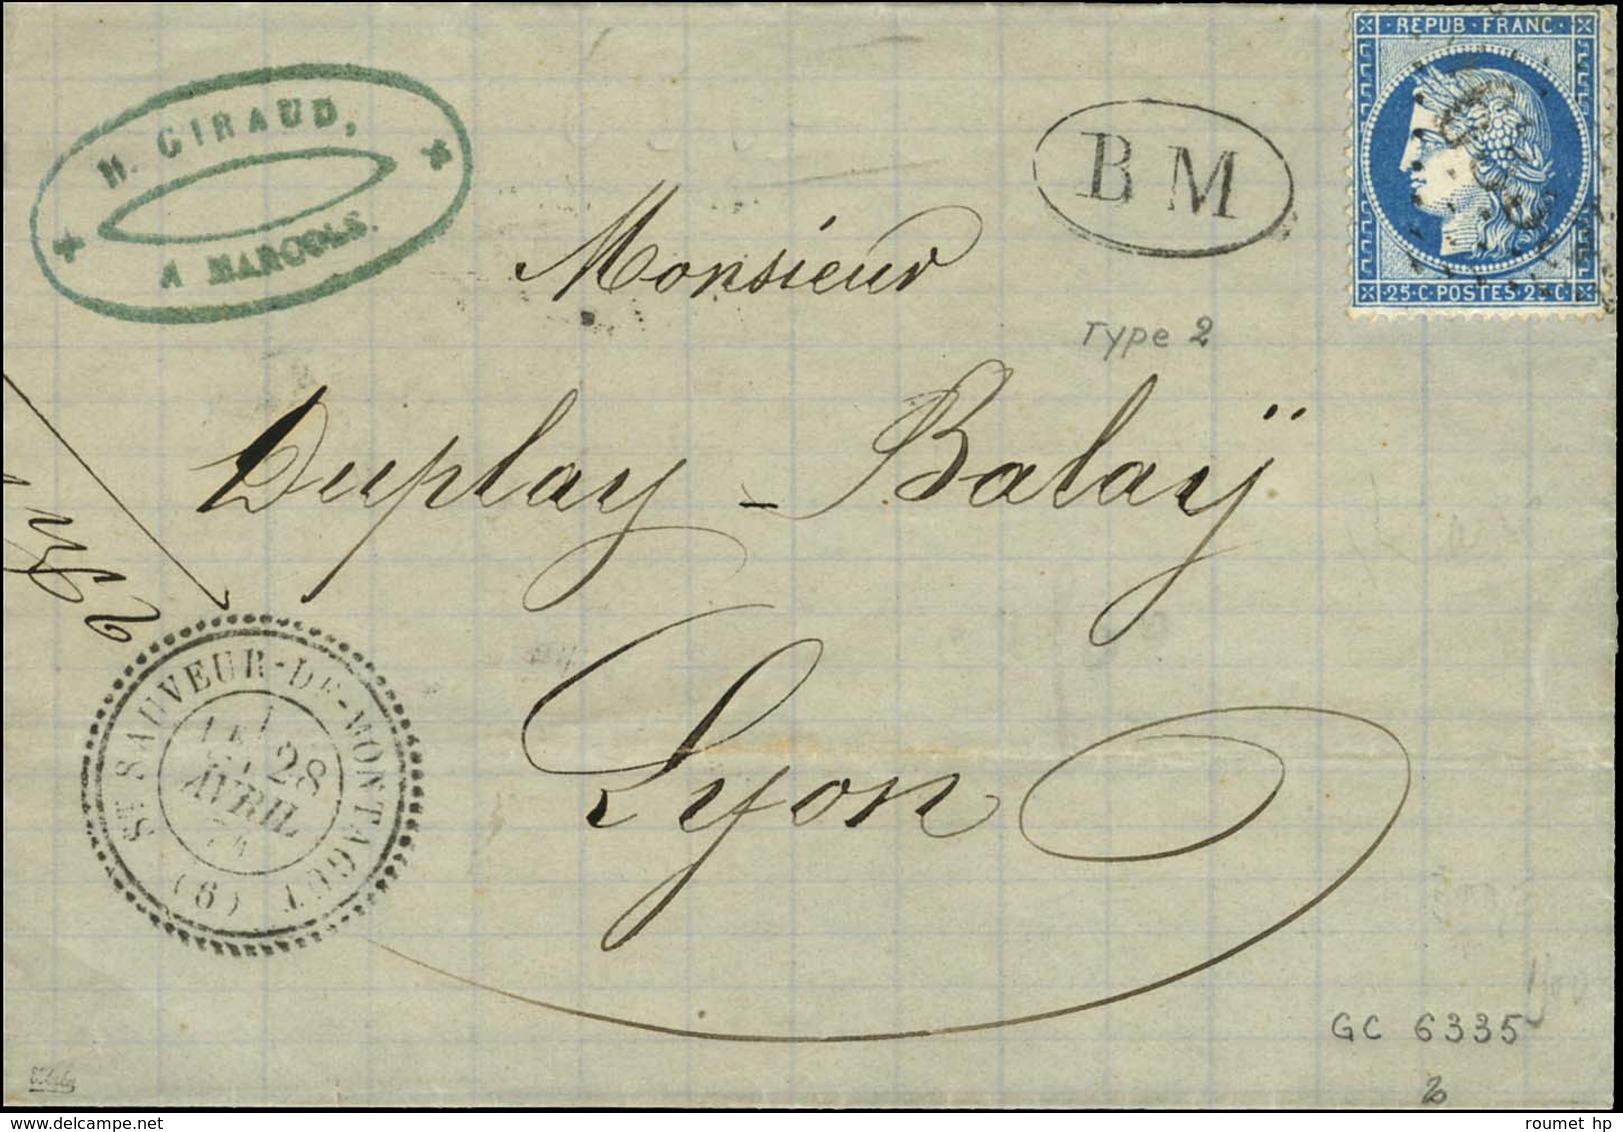 M. GIRAUD,
A MARCOLS.
B M
REPUB · FRANC ·
25 · C · POSTES · 25 · C
Monsieur
Type 2
Duplay - Balaÿ
Lyon
ST SAUVEUR-DE-MONTAGUT
28
AVRIL
74
(6)
GC 6335
2
roumet hp